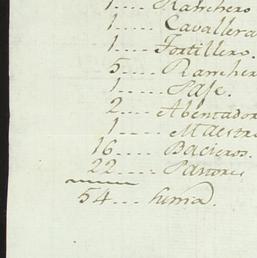 1.... Ranchero
1.... Cavallera
1.... Tortillero.
5.... Ranchero
1.... Paje.
2... Abentador
1.... Maestro
16.... Bacieros.
22.... Pastores
54... Suma.